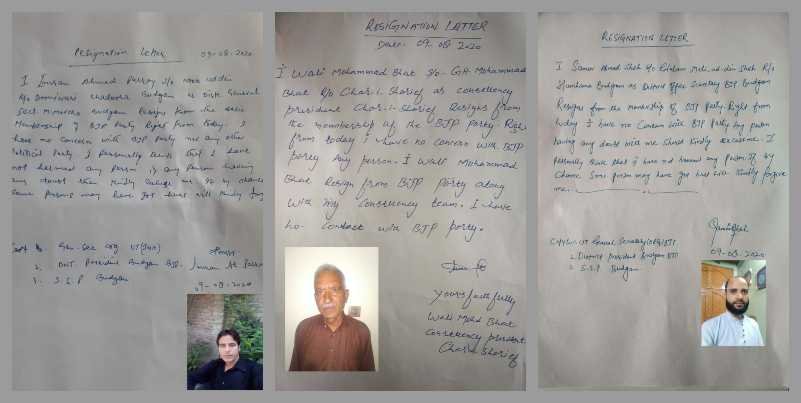 Resignation Letter 09-08-2020
I Imran Ahmad Parray S/o
R/o Chadoora Budgam as Distt General
Budgam Resign from the basic
Membership of BJP Party Right from today. I
have no concern with BJP party nor any other
Political Party. I Personally that I have
not any person if any person having
any doubt then kindly me if by chance
some persons may have got will kindly
Gen-Sec org UT (J&K)
2. Distt President Budgam BJP. Imran Ah Parray
3. S.S.P Budgam
09-08-2020
RESIGINATION LATTER
Date: 09-08-2020
I Wali Mohammad Bhat S/o- GH-Mohammad
Bhat R/o Char-i-Sharief as constiency
president Char-i-Sharief Resigns from
the membership of the BJP Party Right
from today I have no concern with BJP
party Any person. I Wali Mohammad
Bhat Resign from BJP party along
with my constiuency team. I have
no- contact with BJP party.
Yours faithfully
Wali Mohd Bhat
constiency president
Char-i-Sharief
RESIGINATION LETTER
09-08-2020
I Ahmad Shah S/o Ghulam Mohi-ud-din Shah R/o
Budgam as District Office Secretary BJP Budgam
Resigns from the membership of BJP Party. Right from
today I have no Concern with BJP Party Any person
having any doubt with me should kindly I
personally that I have not any person if by
Chance Some person may have got hurt will kindly forgive
me.
Copy to: UT General Secretary (ORG) BJP
2. District President Budgam BJP
3. S.S.P Budgam
09-08-2020